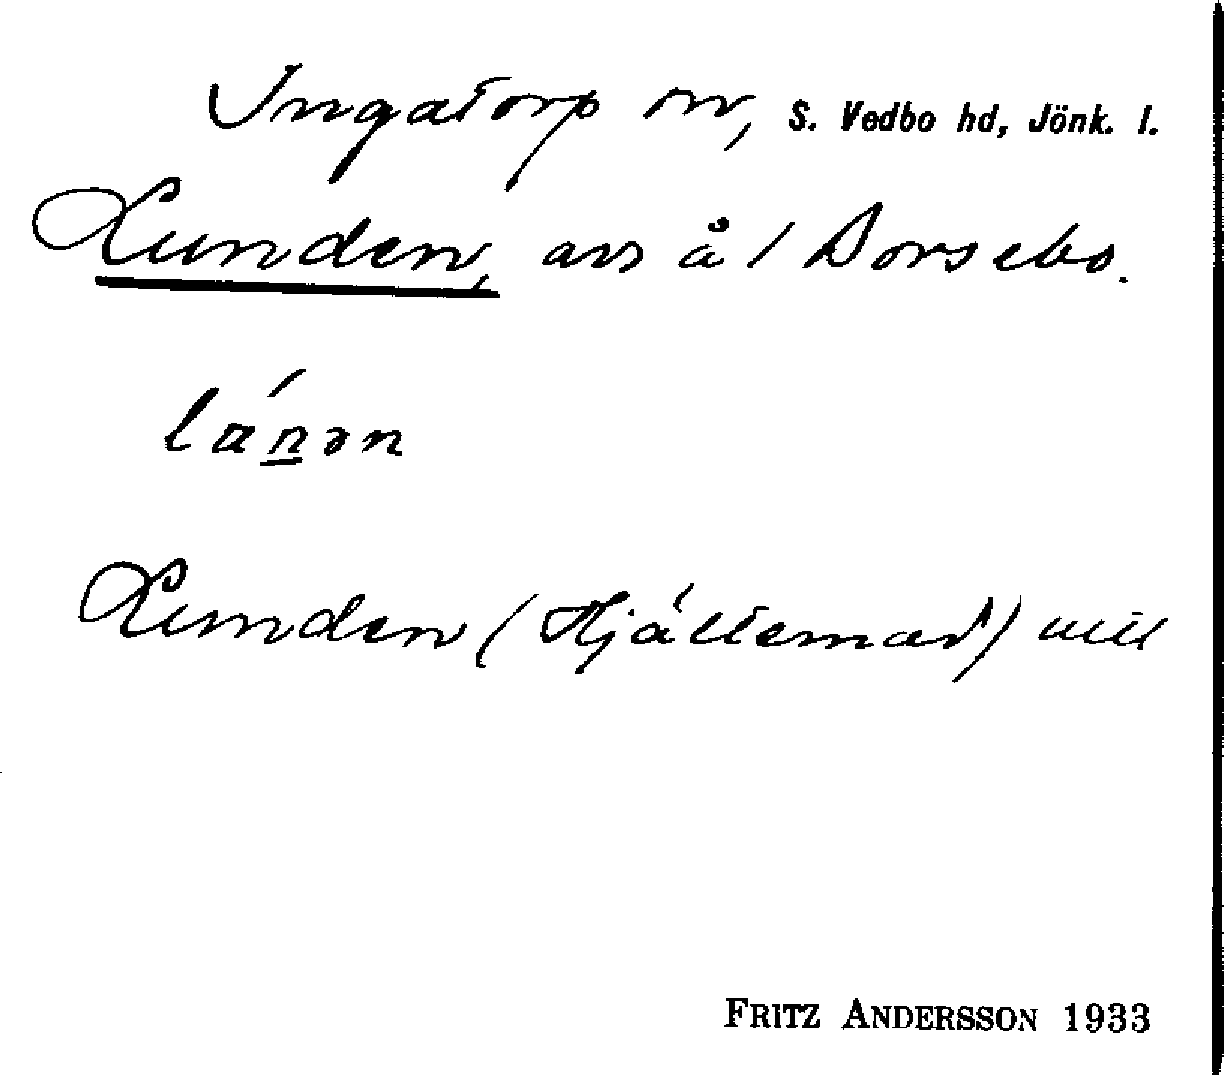 Ingatorp sn, S. Vedbo hd, Jönk. l.
Lunden, avs å 1 Dorsebo.
lánən
Lunden (Hjältemad)
FRITZ ANDERSSON 1933